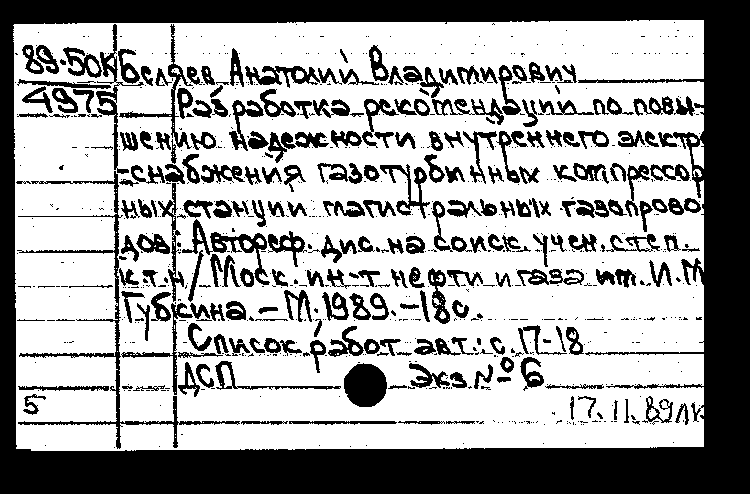 89-50к Беляев Анатолий Владимирович
4975 Разработка рекомендаций по повы-
шению надежности внутреннего электро
-снабжения газотурбинных компрессор
ных станций магистральных газопрово
дов: Автореф. дис. на соиск. учен. степ.
к.т.н / Моск. ин-т нефти и газа им. И.М
Губкина. - М. 1989. - 18с.
Список работ авт.: с. 17-18
ДСП Экз № 6
5 17.11.89лк